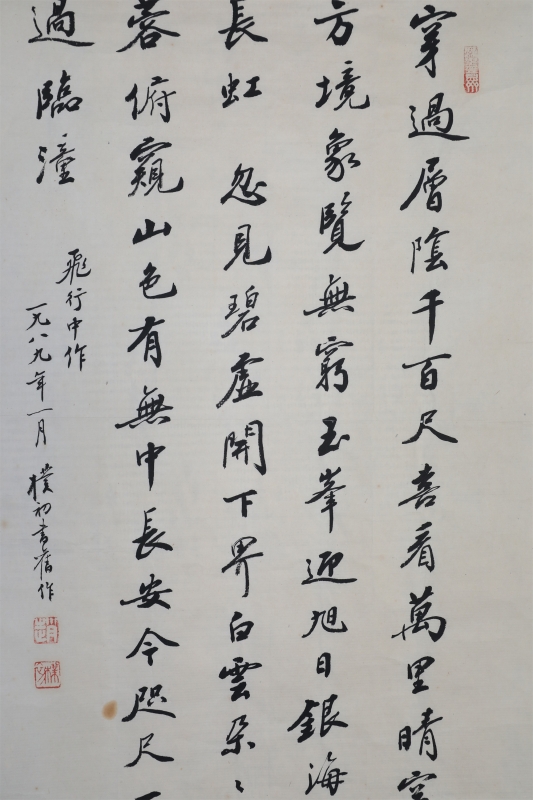 穿過層陰千百尺喜看萬里晴空
方境象覽無窮玉峯迎旭日銀海
長虹 忽見碧虛開下界白雲朵〻
蓉俯窺山色有無中長安今咫尺一
過臨潼
飛行中作
一九八九年一月 樸初書舊作